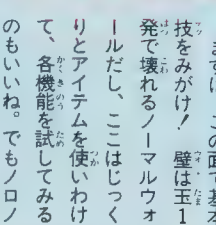 まずは、この面で基本
技をみがけ！　壁は玉1
発で壊れるノーマルウォ
ールだし、ここはじっく
りとアイテムを使いわけ
て、各機能を試してみる
のもいいね。でもノロノ